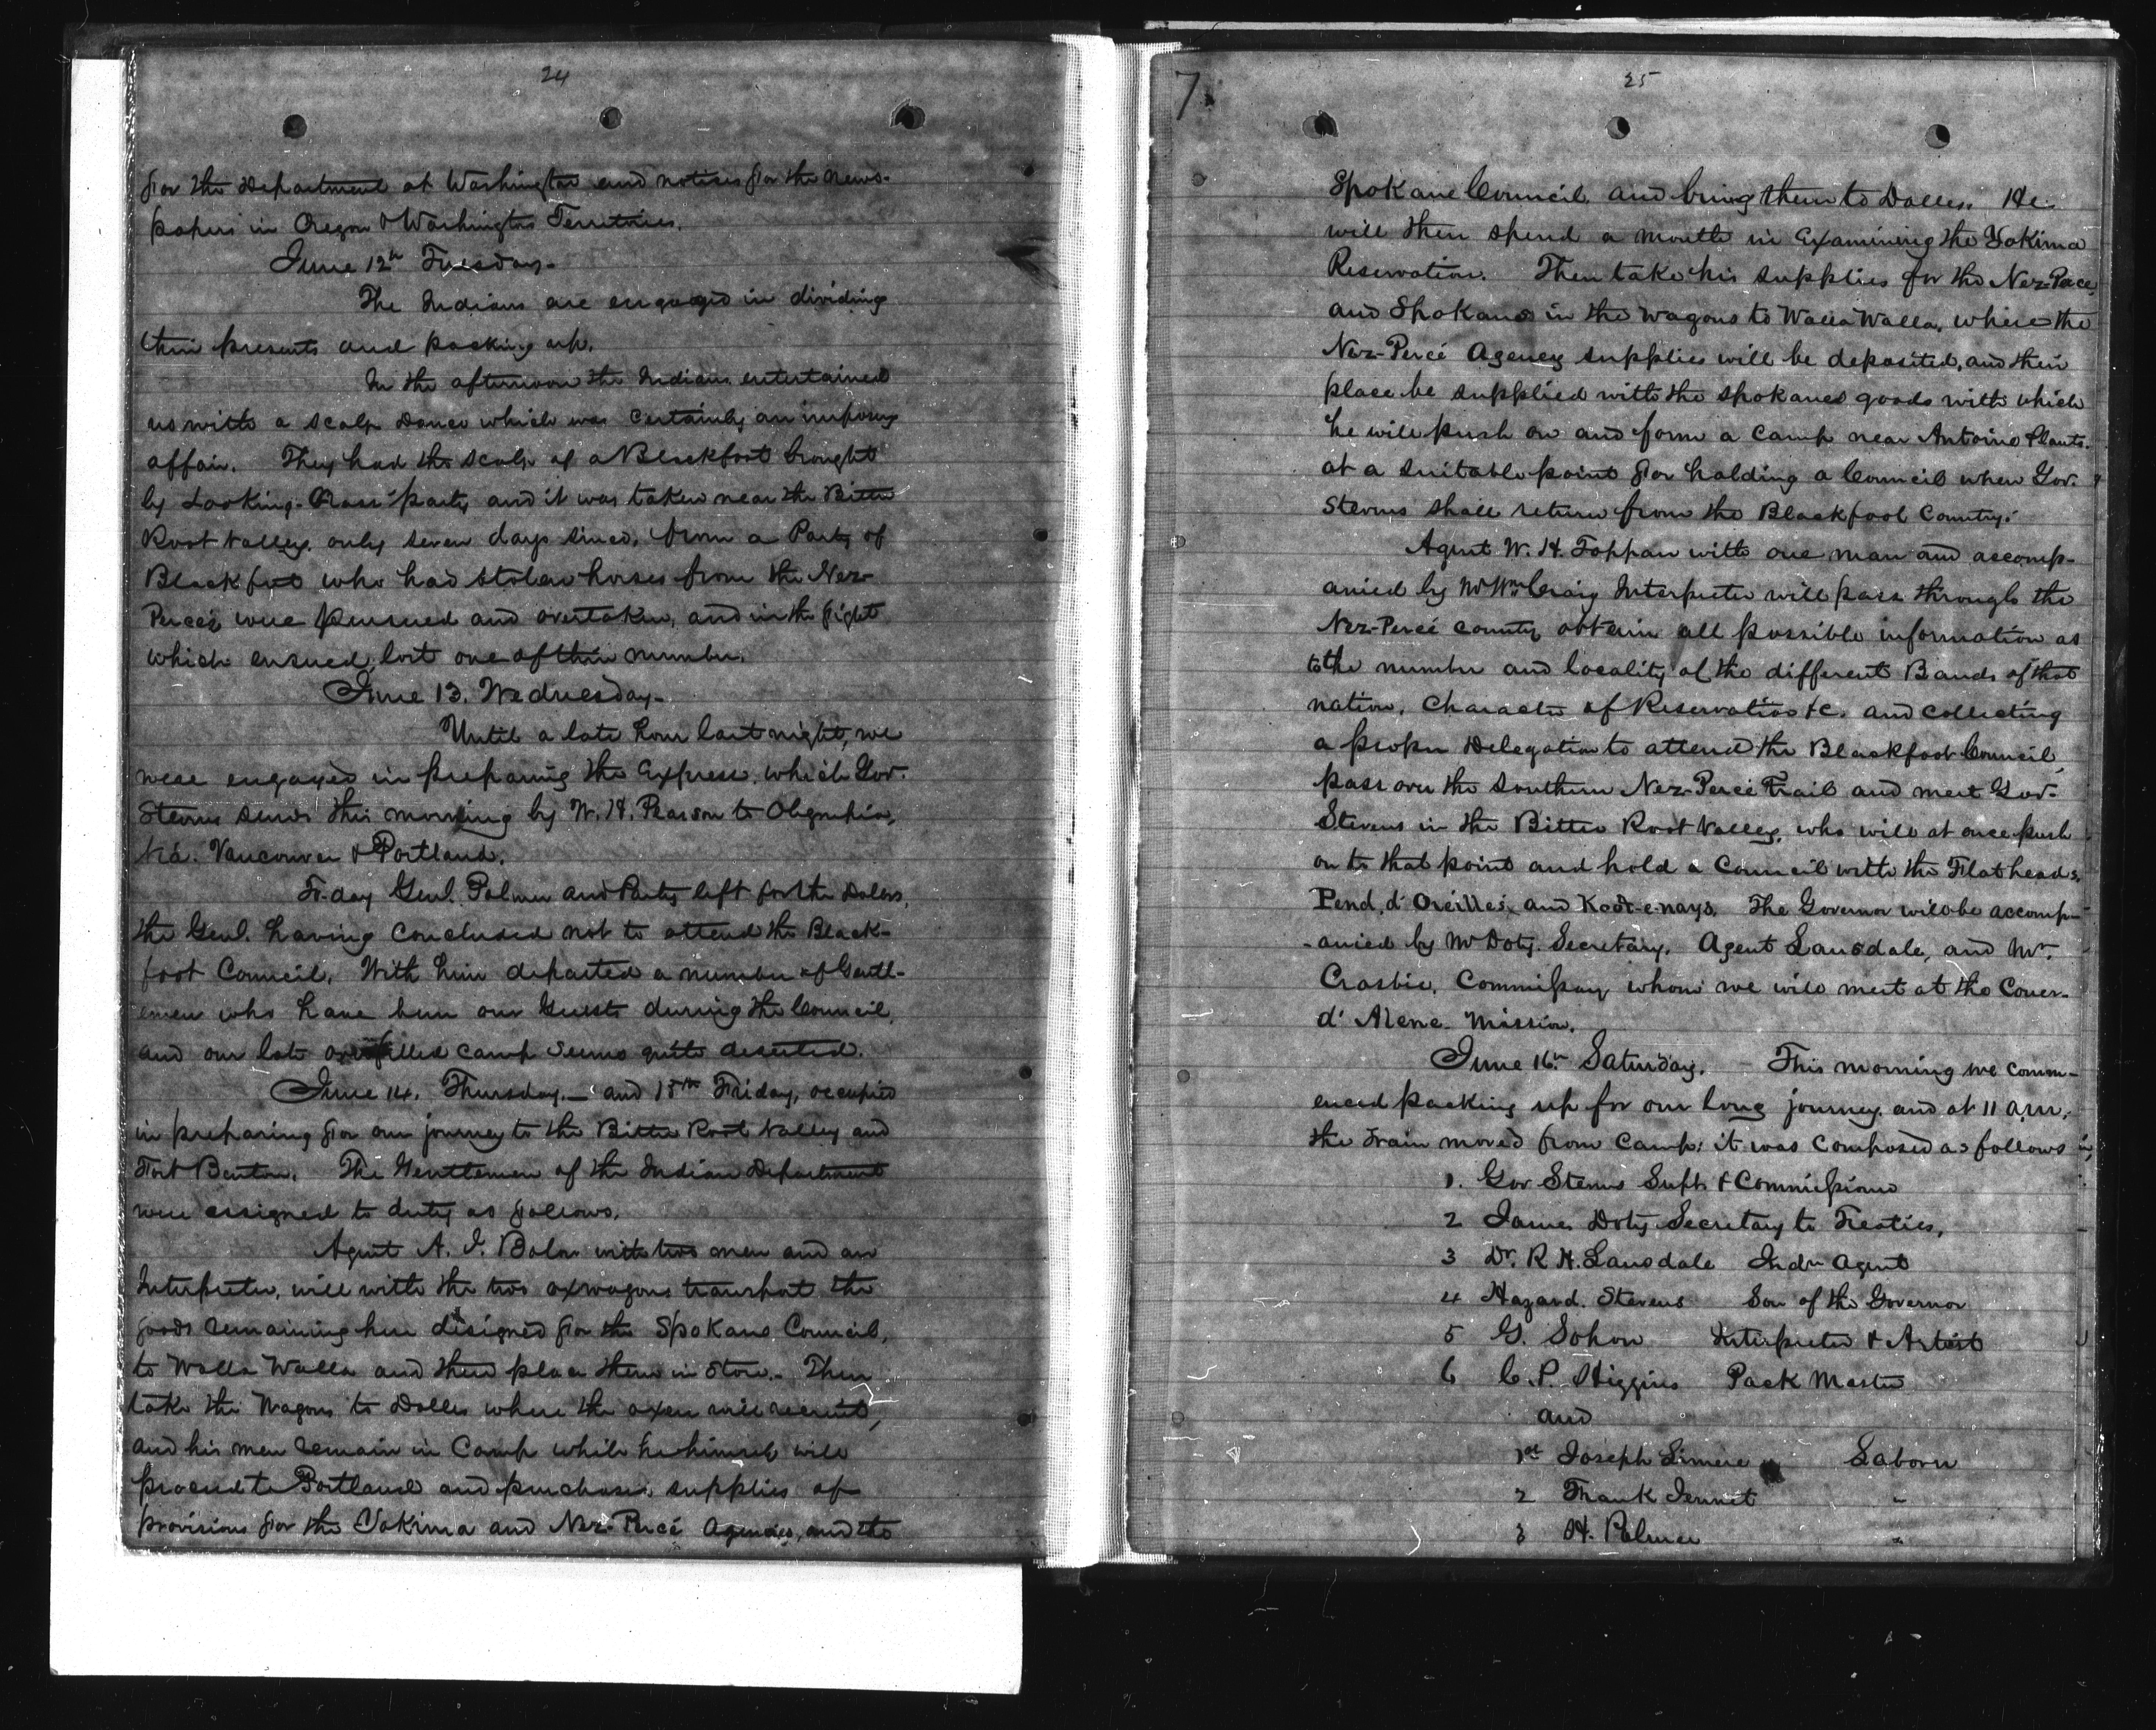 24
for the Department at Washington and notices for the news-
papers in Oregon & Washington Territories.
June 12th Tuesday-
The Indians are engaged in dividing
their presents and packing up.
In the afternoon the Indians entertained
us with a scalp Dance which was certainly an imposing
affair. They had the scalp of a Blackfoot brought
by Looking-Glass' party and it was taken near the Bitter
Root Valley, only seven days since, from a Party of
Blackfeet who had stolen horses from the Nez-
Percés, were pursued and overtaken, and in the fight
which ensued, lost one of their number.
June 13. Wednesday-
Until a late hour last night, we
were engaged in preparing the Express, which Gov.
Stevens sends this morning by W. H. Pearson to Olympia,
via. Vancouver & Portland.
To-day Genl. Palmer and Party left for the Dalles,
the Genl. having concluded not to attend the Black-
foot Council. With him departed a number of Gentl-
emen who have been our Guests during the Council,
and our late overfilled camp seems quite deserted.
June 14. Thursday.- and 15th Friday, occupied
in preparing for our journey to the Bitter Root Valley and
Fort Benton. The Gentlemen of the Indian Department
were assigned to duty as follows.
Agent A. J. Bolon with two men and an
Interpreter, will with the two ox wagons transport the
goods remaining here designed for the Spokane Council,
to Walla Walla and there place them in Store.- Then
take the Wagons to Dalles where the oxen will recruit,
and his men remain in Camp while he himself will
proceed to Portland and purchase supplies of
provisions for the Yakima and Nez-Percé Agencies, and the
7
25
Spokane Council and bring them to Dalles. He
will then spend a month in examining the Yakima
Reservation. Then take his supplies for the Nez-Perce
and Spokane in the wagons to Walla Walla, where the
Nez-Percé Agency supplies will be deposited, and their
place be supplied with the Spokanes goods with which
he will push on and form a camp near Antoine Plants.
at a suitable point for holding a Council when Gov.
Stevens shall return from the Blackfoot Country.
Agent W. H. Tappan with one man and accomp-
anied by Mr Wm Craig Interpreter will pass through the
Nez-Percé country obtain all possible information as
to the number and locality of the different Bands of that
nation, character of Reservation &c. and collecting
a proper Delegation to attend the Blackfoot Council,
pass over the Southern Nez-Percé Trail and meet Gov-
Stevens in the Bitter Root Valley, who will at once push
on to that point and hold a Council with the Flatheads,
Pend, d' Oreilles, and Koot-e-nays. The Governor will be accomp-
-anied by Mr Doty. Secretary, Agent Lansdale, and Mr.
Crosbie, Commissary whom we will meet at the Couer-
d' Alene Mission.
June 16th Saturday. - This morning we comm-
enced packing up for our long journey, and at 11 a.m,
the train moved from Camp: it was composed as follows
1. Gov Stevens Supt. & Commissioner
2 James Doty Secretary to Treaties,
3 Dr. R. H. Lansdale Indn Agent
4 Hazard. Stevens Son of the Governor
5 G. Sohon Interpreter & Artist
6 C. P. Higgins Pack Master
and
1st Joseph Limere Laborer
2 Frank Jennet "
3 H. Palmer "